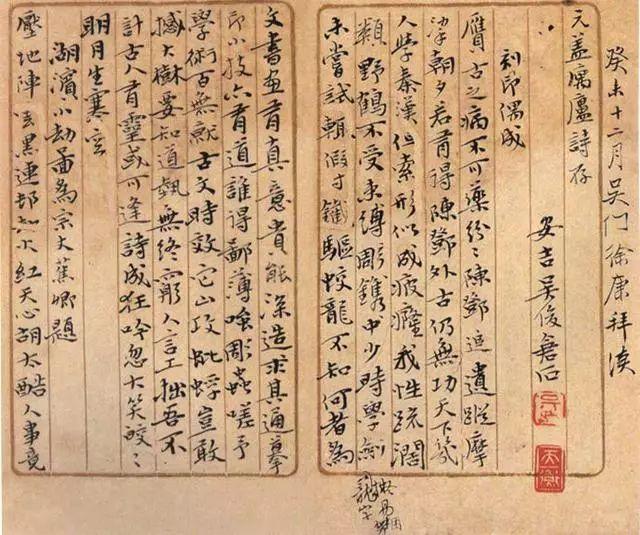 癸未十二月吳門徐康拜讀
元蓋寓廬詩存
安吉吳俊倉石
刻印偶成
贗古之病不可藥紛〻陳鄧追遺蹤摩
挲朝夕若有得陳鄧外古仍無功天下幾
人學秦漢但索形似成疲癃我性疏闊
類野鶴不受束縛雕鐫中少時學劍
未嘗試輒假寸鐵驅蛟龍不知何者為
文書畫有真意貴能深造求其通摹
印小技亦有道誰得鄙薄嗤雕蟲嗟予
學術百無就古文時效它山攻蚍蜉豈敢
撼大樹要知道藝無終窮人言工拙吾不
計古人有靈或可逢詩成狂吟忽大笑皎〻
明月生寒空
湖濱小劫圖為宗大蕉卿題
壓地陣雲黑連邨火紅天心胡太酷人事竟